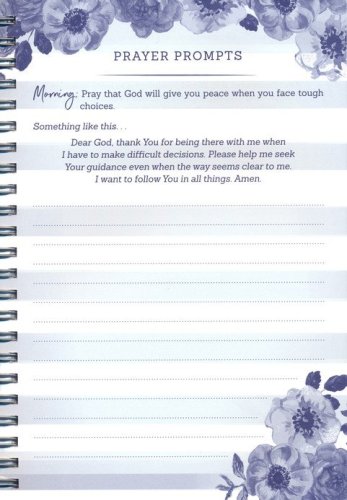 PRAYER PROMPTS
Morning: Pray that God will give you peace when you face tough
choices.
Something like this. . .
Dear God, thank You for being there with me when
I have to make difficult decisions. Please help me seek
Your guidance even when the way seems clear to me.
I want to follow You in all things. Amen.